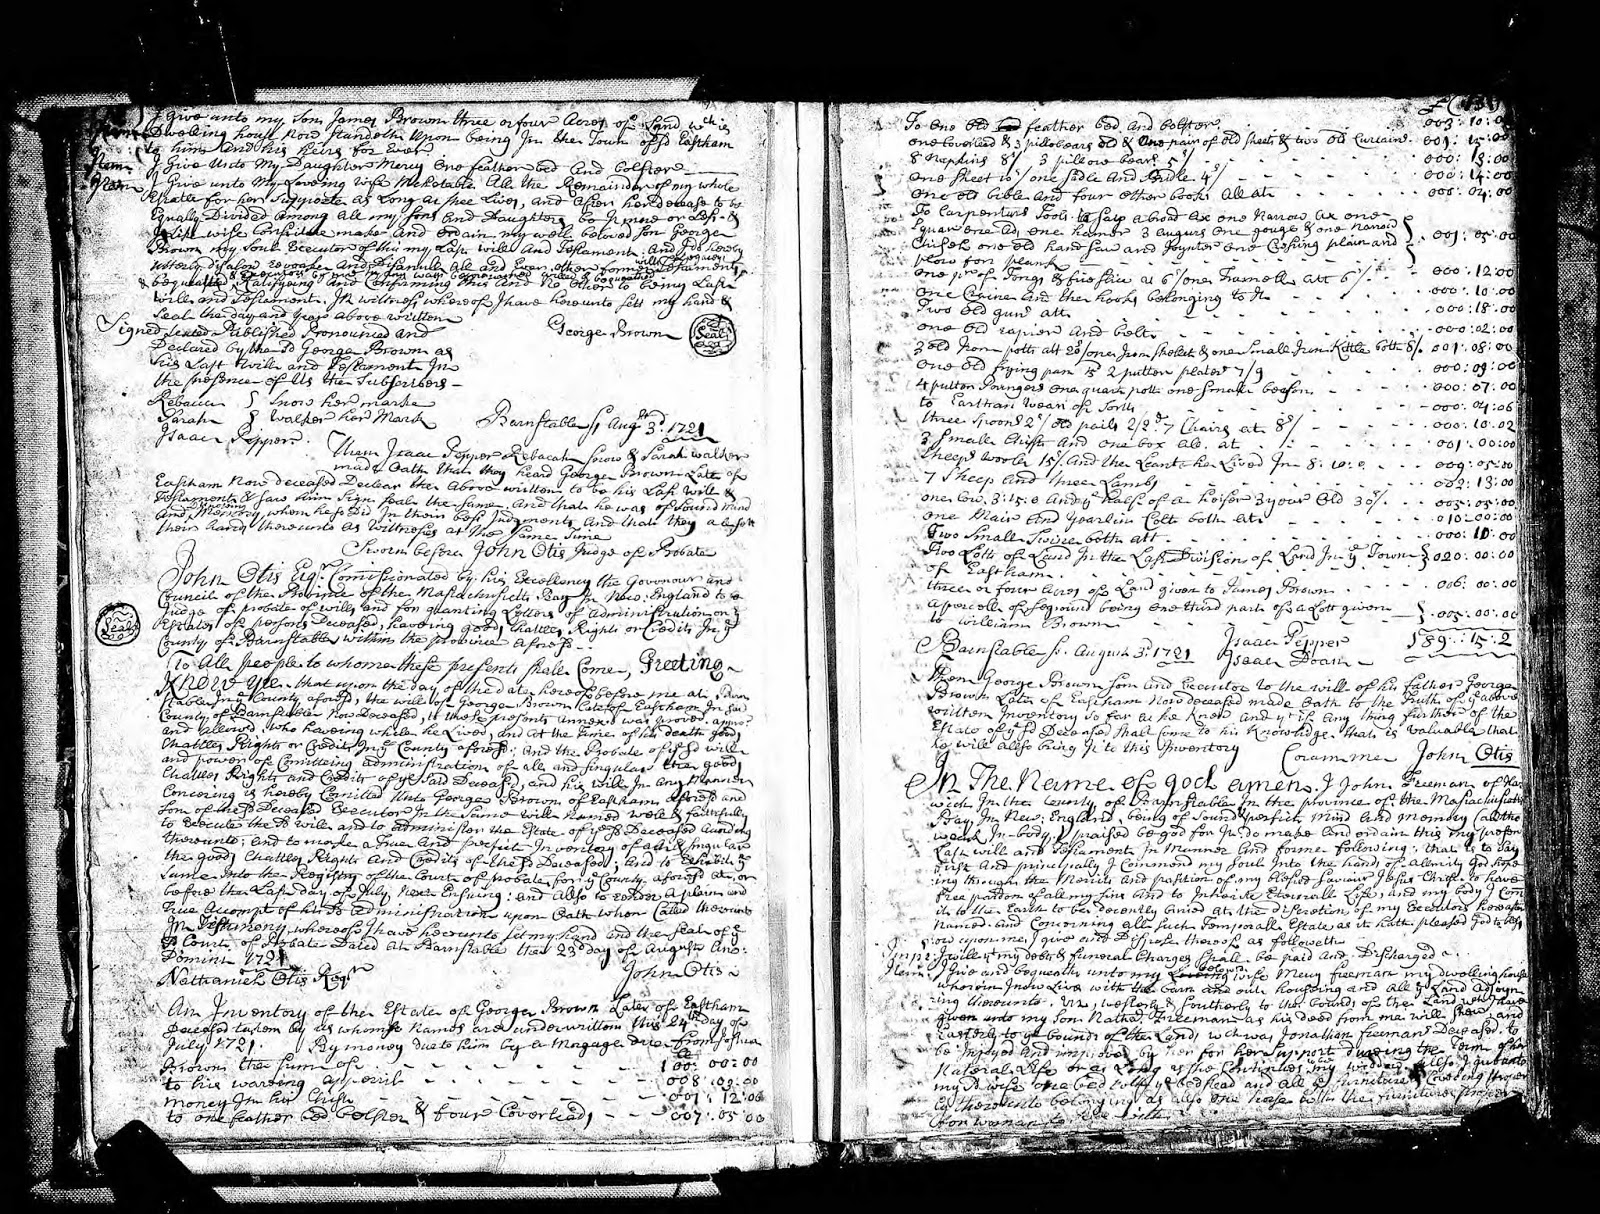 I Give unto my Son James Brown three or four Acres of Land wch is
Dwelling house Now Standeth Upon being In the Town of sd Eastham
to him And his Heirs for Ever
Item I Give Unto My Daughter Mercy One feather bed And bolster
Item I Give unto My Loveing wife Mehetable All the Remainder of my whole
Estate for her Support as Long as shee Lives, and After her Decease to be
Equally Divided Among All my Sons And Daughters be it more or Less &
I Likewise Constitute make And ordain my well beloved Son George
Brown my Sole Executor of this my Last will And Testament And I do hereby
utterly Disalow revoake And Disanull All and Every other former Testaments
Ratifying and Confirming this And No Other to being Last
will and Testament. In witness whereof I have hereunto sett my hand &
Seal the day and year above written
Signed Sealed Published Pronounced and George Brown Seal
Declared by the sd George Brown as
his Last will and Testament In
the presence of Us the Subscribers
Rebecca Snow her marke
Sarah Walker her Mark Barnstable ss Augst 3d 1721
Isaac Pepper. Then Isaac Pepper Rebecah Snow & Sarah walker
made Oath that they heard George Brown Late of
Eastham Now deceased Declare the Above written to be his Last will &
Testament & saw him Sign Seale the same, And that he was of Sound Mind
And Memory when he so Did In their best Judgments And that they also sett
their hands thereunto as Witnesses at the Same Time
Sworn before John Otis Judge of Probate
John Otis Esqr Comissionated by his Excellency the Governour and
Council of the Province of the Masachusetts Bay In New England to be
Judge of probate of wills and for granting Letters of Administration on ye
Seal Estates of persons Deceased, haveing goods Chattles Rights or Credits In ye
County of Barnstable within the province aforesd
To All people to whome these presents shall Come, Greeting
Know Yee that upon the day of the date hereof before me at Barn
stable In ye County aforesd, the will of George Brown Late of Eastham In sd
County of Barnstable Now Deceased, to these presents Annexed was proved approved
and allowed, who haveing while he Lived, and at the time of his death goods
Chattles Rights or Credits In ye County aforesd: and the Probate of sd will
and power of Comitting administration of all and singular the goods
Chattles Rights and Credits of ye Said Deceased, and his will In any Manner
Concerning is hereby Comitted Unto George Brown of Eastham aforesd and
Son of the sd Deceased Executor In the Same will Named well & faithfully
to Execute the sd will and to administer the Estate of ye sd Deceased Acording
thereunto; and to make a True And perfect Inventory of all & singular
the goods Chattles Rights And Credits of the sd Deceased; and to Exhibit ye
same Into the Registry of the Court of probate for ye County aforesd at or
before the Last day of July Next Ensuing: and Also to render a plain and
true Accompt of his sd administration upon Oath when Called thereunto
In Testimony whereof I have hereunto set my hand and the Seal of ye
sd Court of Probate Dated at Barnstable the 23d day of August Ano:
Domini 1721
Nathaniel Otis Regr John Otis
An Inventory of the Estate of George Brown Late of Eastham
Deceased taken by us whose Names are underwritten this 24th day of
July 1721. By money due to him by a Morgage due from Joshua
Brown the sum of 100: 00:00
to his waring apparil 008:09:00
money In his Chist 001:12:06
to one feather bed bolster & four Coverleads 007:05:00
To One Old feather bed And bolster 003:10:0
one Coverled & 3 pillobears old & One pair of old sheets & two Old Curtains 001:15:00
8 Napkins 8/ 3 pillow bears 5/ 000:13:00
one Sheet 10/ one Sadle And Bridle 4/ 000:14:00
one old bible And four other books All at 000:04:00
To Carpenters Tools to say a broad Ax one Narrow Ax one
Square one Adz one hamer 3 augurs One gouge & one Narrow
Chissel one old hand saw and Joynter one Creasing plain and 001:05:00
plow for plank
one pr of Tongs & fire slice at 6/ one Tramell att 6/ 000:12:00
one Canoe And the hooks belonging to It 000:10:00
Two Old guns att 000:18:00
one Old rapier And belt 000:02:00
3 old Iron potts att 20/ one Iron skelet & one Small Iron Kittle both 8/ 001:08:00
one Old frying pan 2 putton plates 7/9 000:09:00
4 putton Poringers One quart pott one small beeson 000:07:00
to Earthan wear of Sorts 000:04:06
three Spoons 2/ old pails 2/2d 7 Chairs at 8/ 000:10:02
3 Small Chists And one box All at 001:00:00
Sheeps wooll 15/ And the 8:10:0 009:05:00
7 Sheep and three Lambs 002:13:00
one Cow 3:15:0 And ye half of a heifer 3 year Old 30/ 005:05:00
one Mair And Yearlin Colt both at 010:00:00
Two Small Swine both att 000:10:00
Two Lotts of Land In the Last Division of Land In ye Town 020:00:00
of Eastham
three or four Acres of Land given to James Brown 006:00:00
A percell of sd ground being one third part of a Lott given 005:00:00
to William Brown
Isaac Pepper 189:15:2
Barnstable ss. August 3d 1721 Isaac Doan
Then George Brown Son and Executor to the will of his father George
Brown Late of Eastham Now deceased made Oath to the Truth of ye above
written Inventory So far as he Knew and yt if Any thing further of the
Estate of ye sd Deceased Shall Come to his Knowledge that is valuable that
he will Also bring It to this Inventory Coram me John Otis
In The Name of god amen. I John Freeman of Har
wich In the County of Barnstable In the province of the Masachusetts
Bay In New England, being of Sound & perfect Mind and Memory (altho
weak In body,) praised be god for It do make And ordain this my present
Last will and Testament In Manner And forme following: that is to Say
first And principally I Commend my Soul Into the hands of almity God hope
ing through the Merits And passion of my blesed Saviour Jesus Christ to have
free pardon of all my sins And to Inherite Eternall Life, and my body I Com
it to the Earth to be decently buried at the discretion of my Executors hereafter
Named: and Concerning all such Temporall Estate as it hath pleased God to
upon me, I give and Dispose thereof as followeth
Impr I will yt my debts & funeral Charges Shall be paid And Discharged
Item I give and bequeath unto my beloved wife Mercy freeman my dwelling house
wherein I now Live with the barn and out housing and all ye Land adjoyn
ing thereunto westerly & southerly to the bounds of the Land wch I have
given unto my Son Nathll Freeman as his deed from me will shew, and
Easterly to ye bounds of the Land wch was Jonathan freemans Deceased, to
be Injoyed and improved by her for her support dureing the Term of her
Natural Life or as Long as she Continues my widdow Also I give unto
my sd wife one bed bolster ye bedstead and all ye furniture & Covering
thereunto belonging as also one horse with the furniture